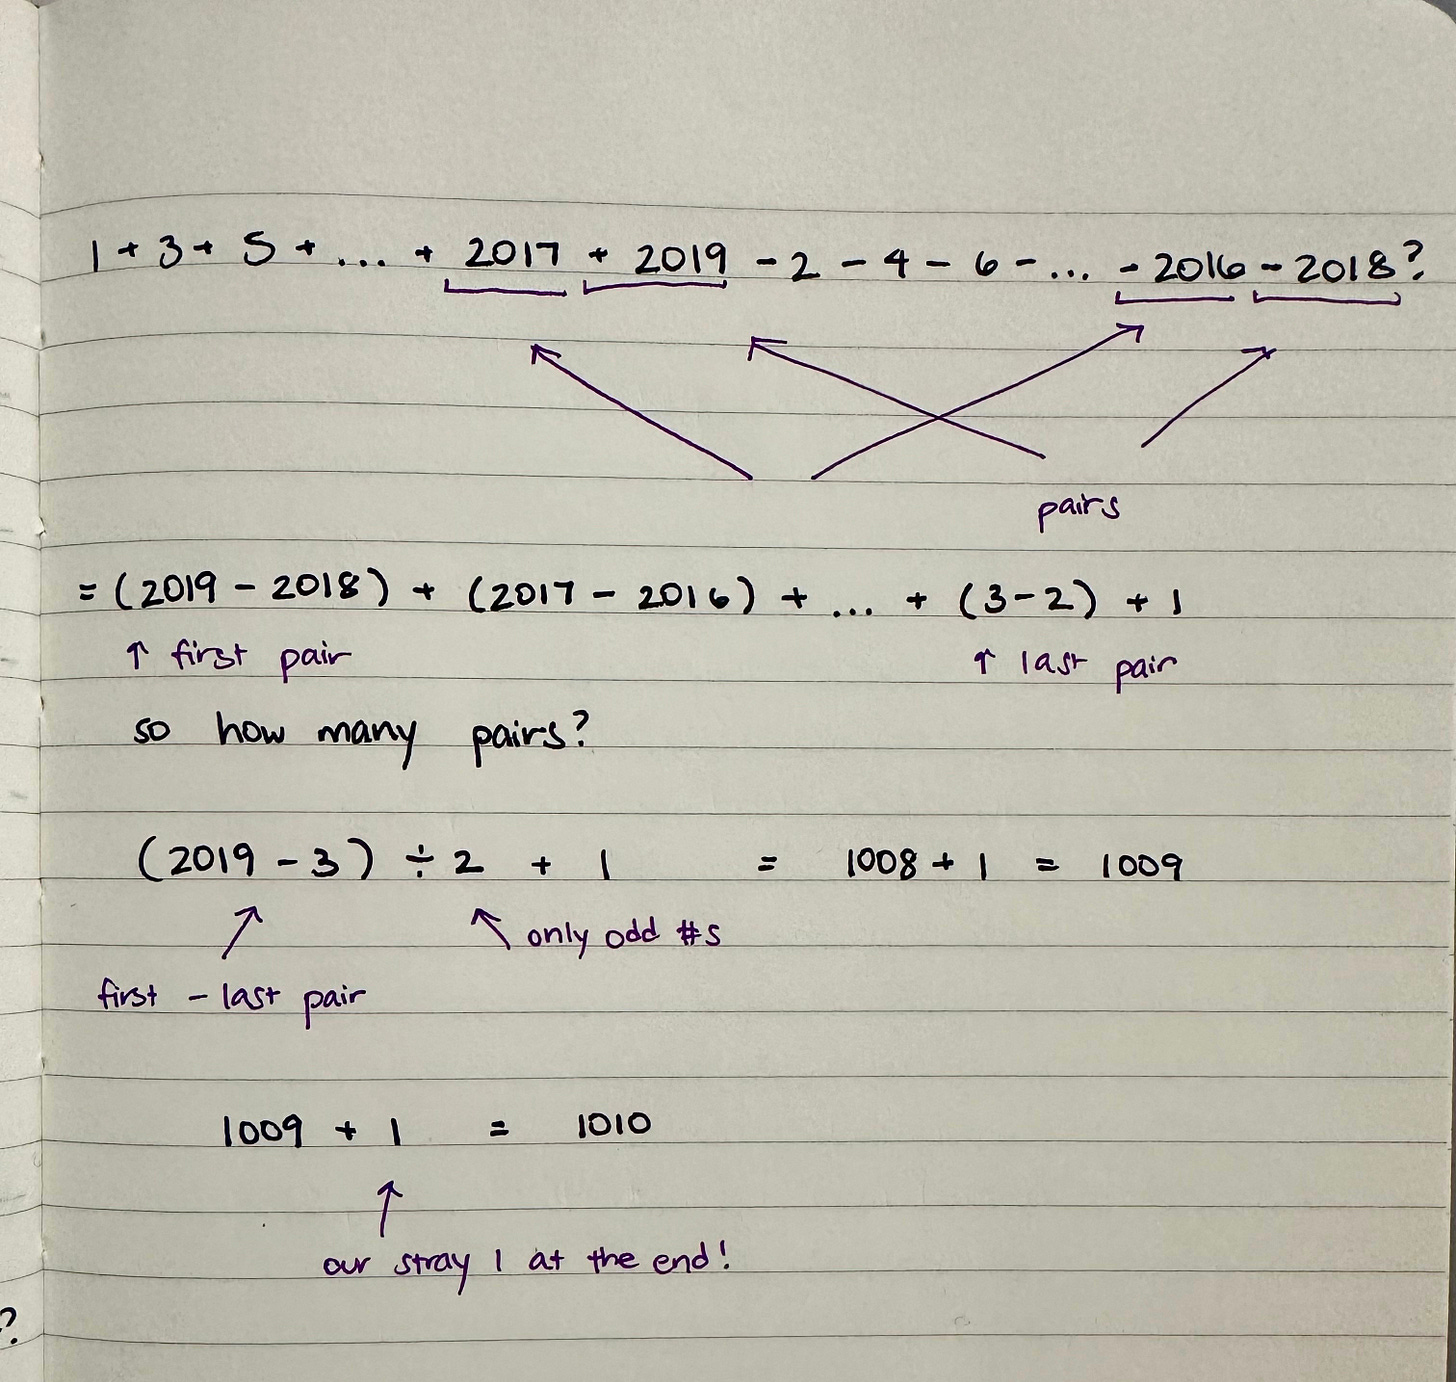 1 + 3 + 5 + ... + 2017 + 2019 - 2 - 4 - 6 - ... - 2016 - 2018?
pairs
= (2019 - 2018) + (2017 - 2016) + ... + (3 - 2) + 1
↑ first pair ↑ last pair
so how many pairs?
(2019 - 3) ÷ 2 + 1 = 1008 + 1 = 1009
only odd #s
first - last pair
1009 + 1 = 1010
our stray 1 at the end!
?